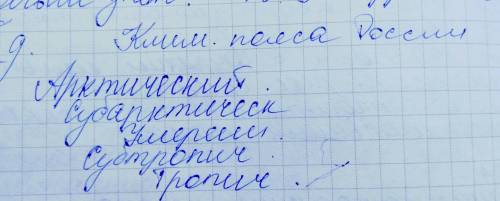 9. Клим. пояса России
Арктический.
Субарктическ
Умерен.
Субтропич.
Тропич.